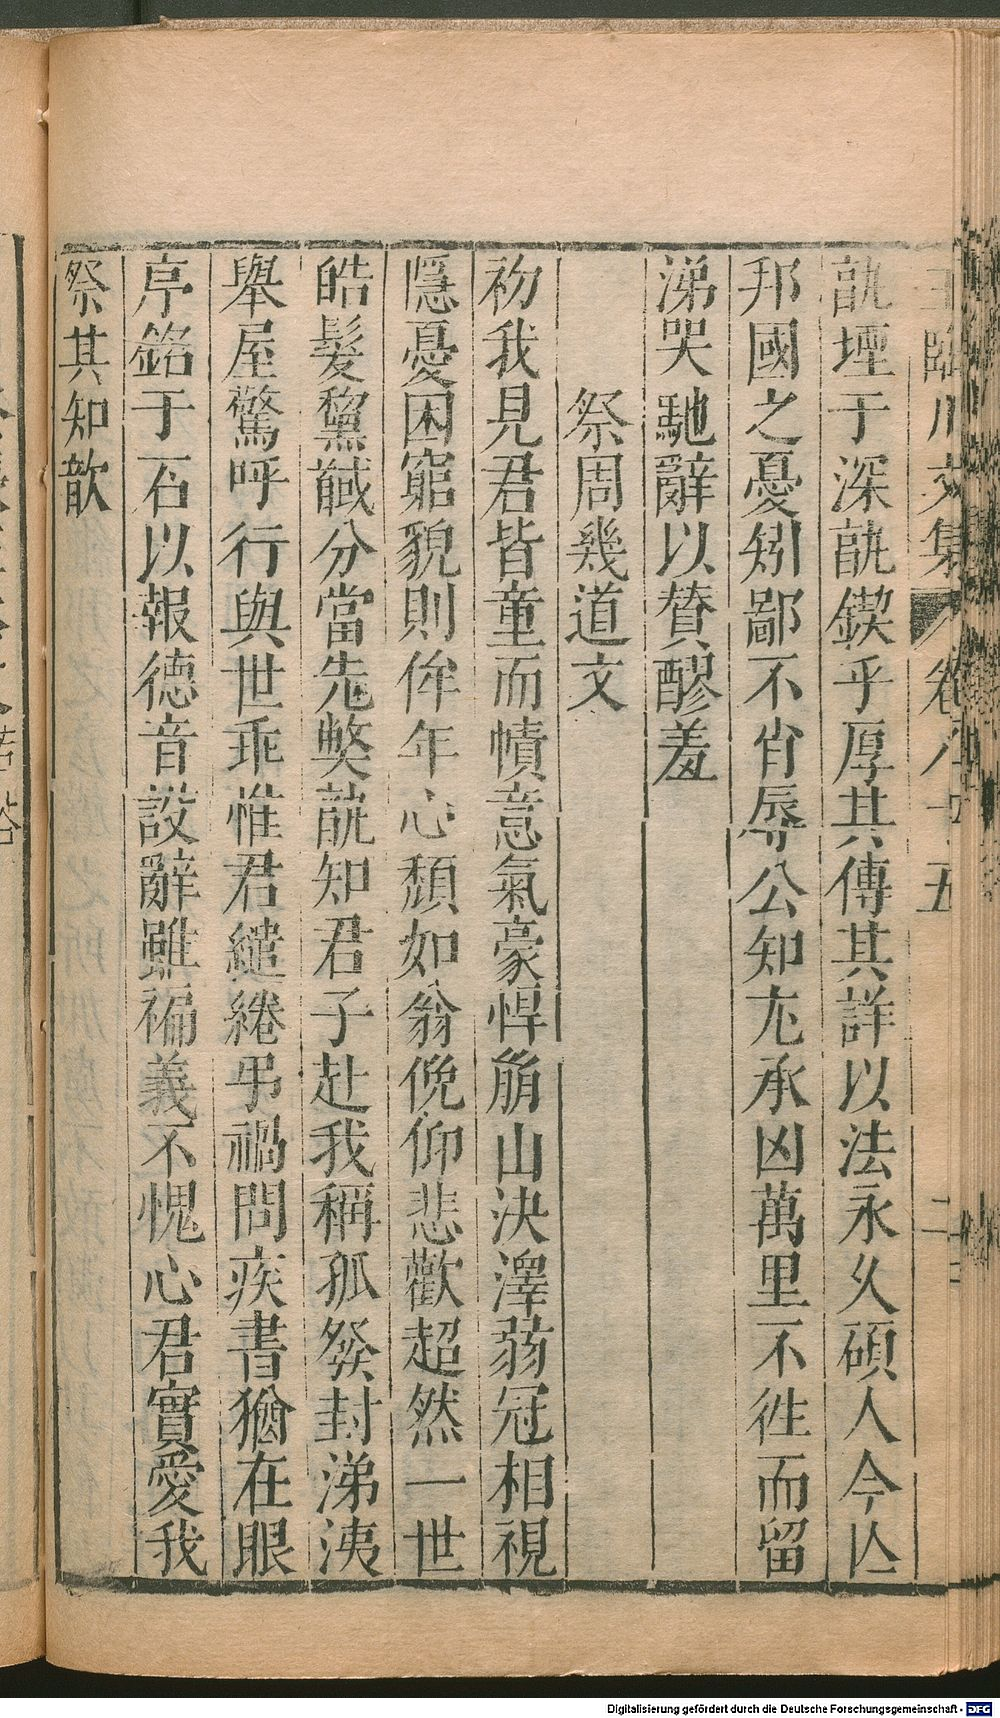 王臨川文集 卷八十五 二
翫堙于深翫鍥乎厚其傳其詳以法永久碩人今亾
邦國之憂矧鄙不肖辱公知尤承凶萬里不徃而留
涕哭馳辭以贊醪羞
祭周幾道文
初我見君皆童而幘意氣豪悍崩山決澤蒻冠相視
隱憂困窮貌則侔年心頹如翁俛仰悲歡超然一世
皓髮黧馘分當先獘翫知君子赴我稱孤發封涕洟
舉屋驚呼行與世乖惟君繾綣弔禍問疾書猶在眼
序銘于石以報德音設辭雖褊義不愧心君實愛我
祭其知歆
Digitalisierung gefördert durch die Deutsche Forschungsgemeinschaft - DFG